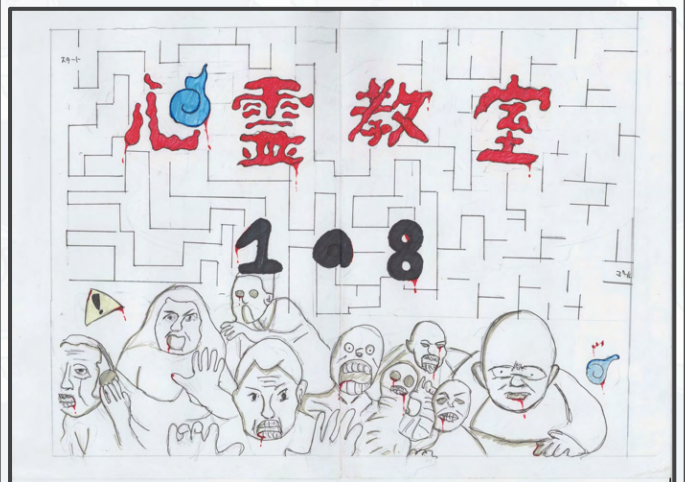 スタート
心霊教室
1の8
ゴール
!